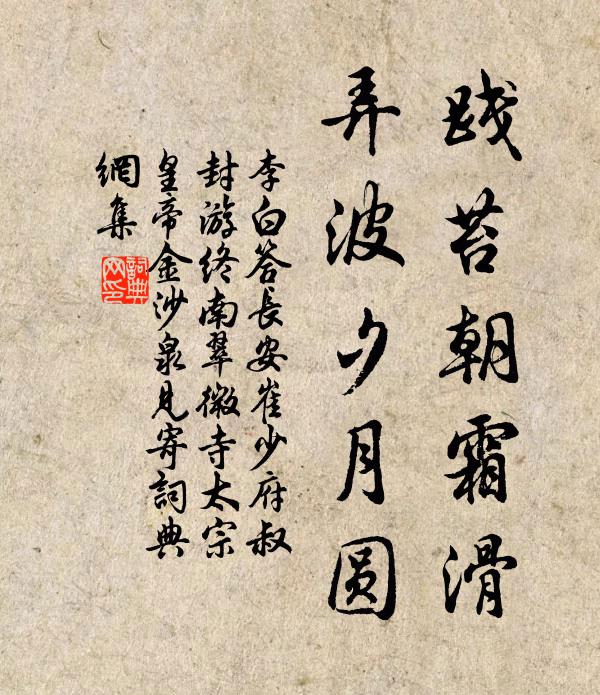 践苔朝霜滑
弄波夕月圆
李白答长安崔少府叔
封游终南翠微寺太宗
皇帝金沙泉见寄词典
網集
詞典
网印